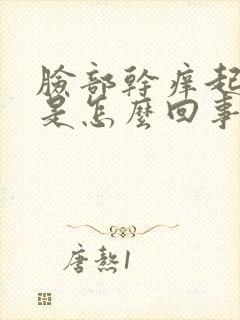 臉部幹癢起
是怎麼回事
唐熬1